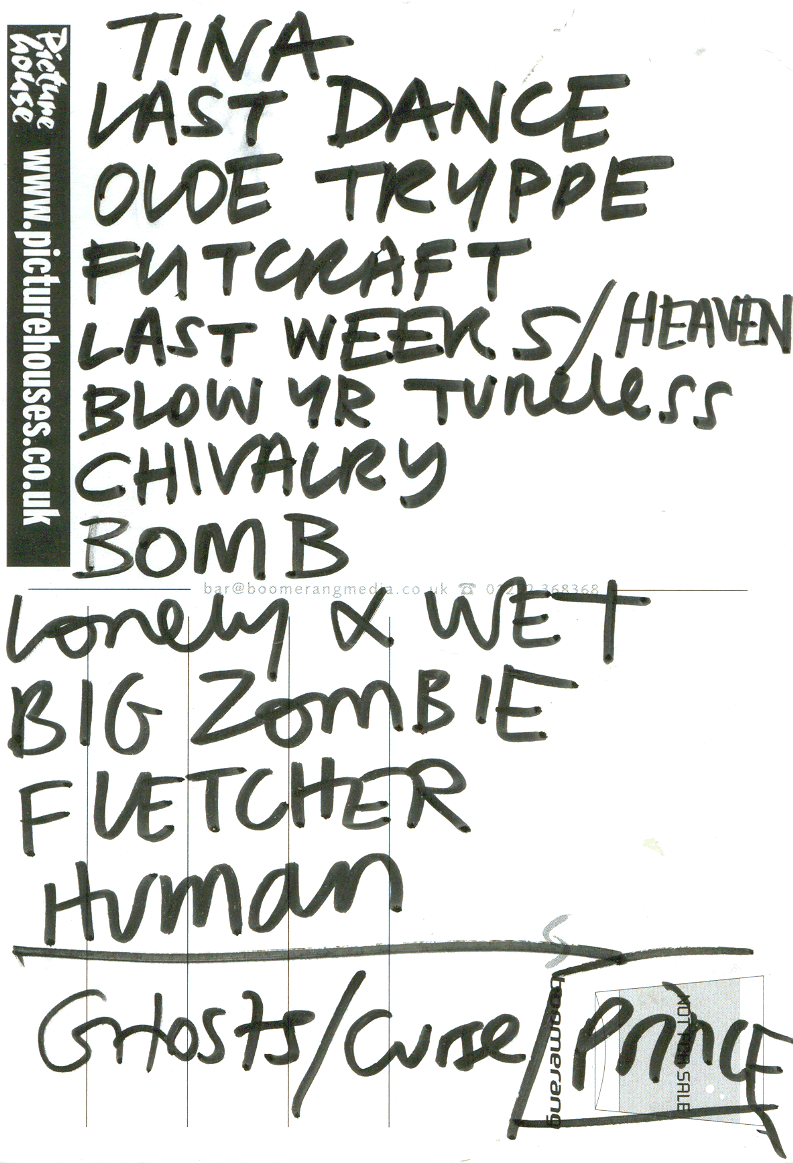 TINA
LAST DANCE
OLDE TRYPPE
FUTCRAFT
LAST WEEKS/HEAVEN
BLOW YR TUNELESS
CHIVALRY
BOMB
LONELY & WET
BIG ZOMBIE
FLETCHER
HUMAN
GHOSTS/CURSE/PRINCE
Picture house www.picturehouses.co.uk
bar@boomerangmedia.co.uk ☎ 368368
boomerang
NOT FOR SALE